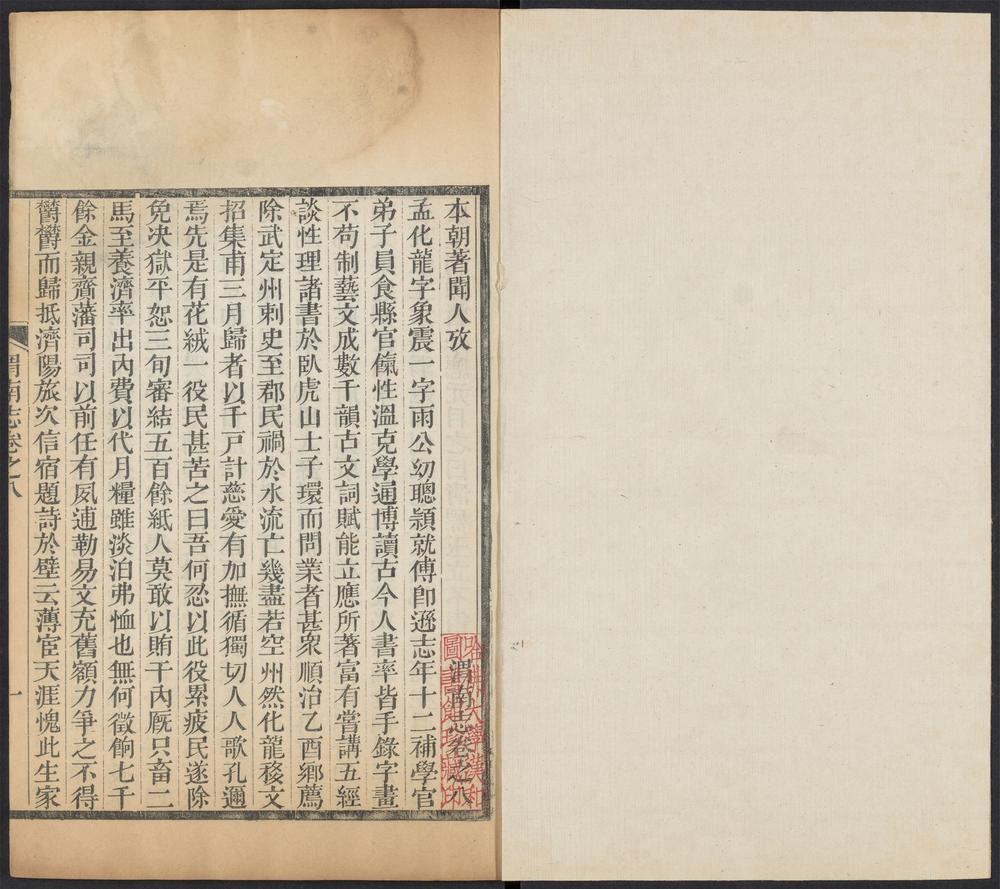 本朝著聞人攷　渭南志卷之八
孟化龍字象震一字雨公幼聰穎就傅卽遜志年十二補學官
弟子員食縣官餼性溫克學通博讀古今人書率皆手錄字畫
不苟制藝文成數千韻古文詞賦能立應所著富有嘗講五經
談性理諸書於臥虎山士子環而問業者甚衆順治乙酉鄉薦
除武定州刺史至郡民禍於水流亡幾盡若空州然化龍移文
招集甫三月歸者以千戸計慈愛有加撫循獨切人人歌孔邇
焉先是有花絨一役民甚苦之曰吾何忍以此役累疲民遂除
免決獄平恕三旬審結五百餘紙人莫敢以賄干內厩只畜二
馬至養濟率出內費以代月糧雖淡泊弗恤也無何徵餉七千
餘金親齎藩司司以前任有夙逋勒易文充舊額力爭之不得
欝欝而歸抵濟陽旅次信宿題詩於壁云薄宦天涯愧此生家
渭南志卷之八　一
哈佛大學漢和
圖書館珍藏印